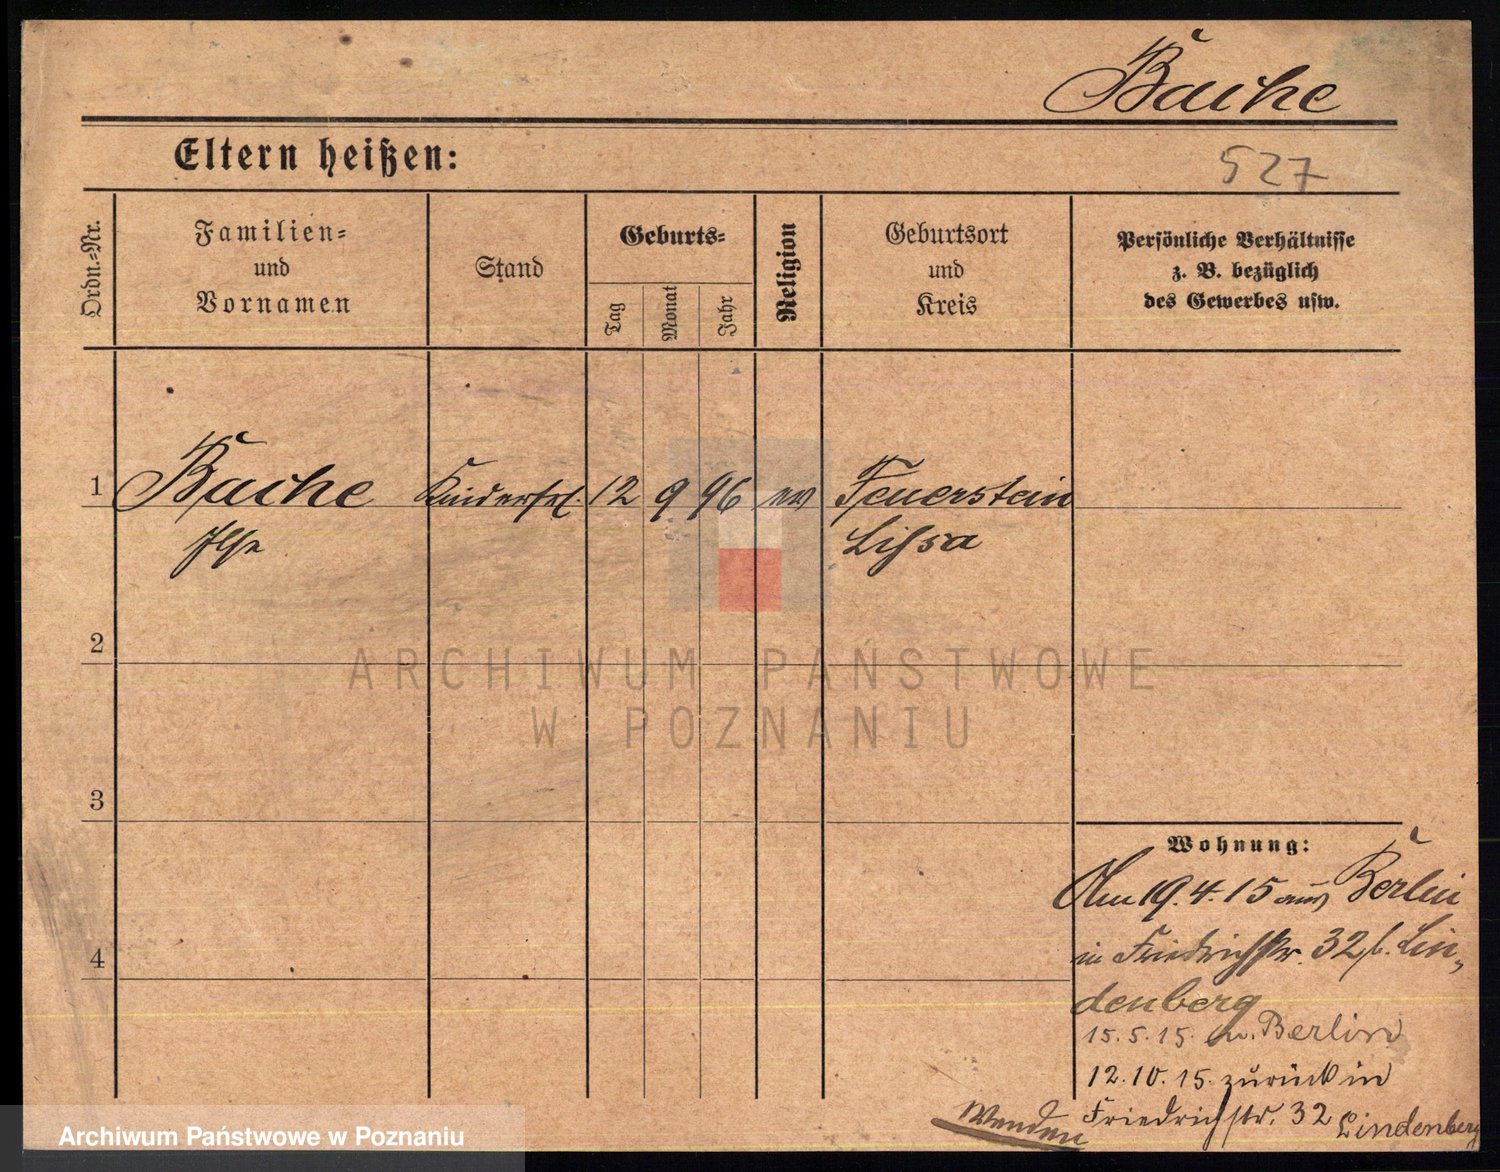 Bache
Eltern heißen:
527
Ordn.-Nr.
Familien-
und
Vornamen
Stand
Geburts-
Tag
Monat
Jahr
Religion
Geburtsort
und
Kreis
Persönliche Verhältnisse
z. B. bezüglich
des Gewerbes usw.
1 Bache Kinderfrl. 12 9 96 ev Feuerstein
Ilse Lissa
2
ARCHIWUM PAŃSTWOWE
W POZNANIU
3
Wohnung:
Am 19.4.15 aus Berlin
in Friedrichstr. 32 b. Lin-
4
denberg
15.5.15. n. Berlin
12.10.15. zurück in
Friedrichstr. 32 Lindenberg
Wenden
Archiwum Państwowe w Poznaniu